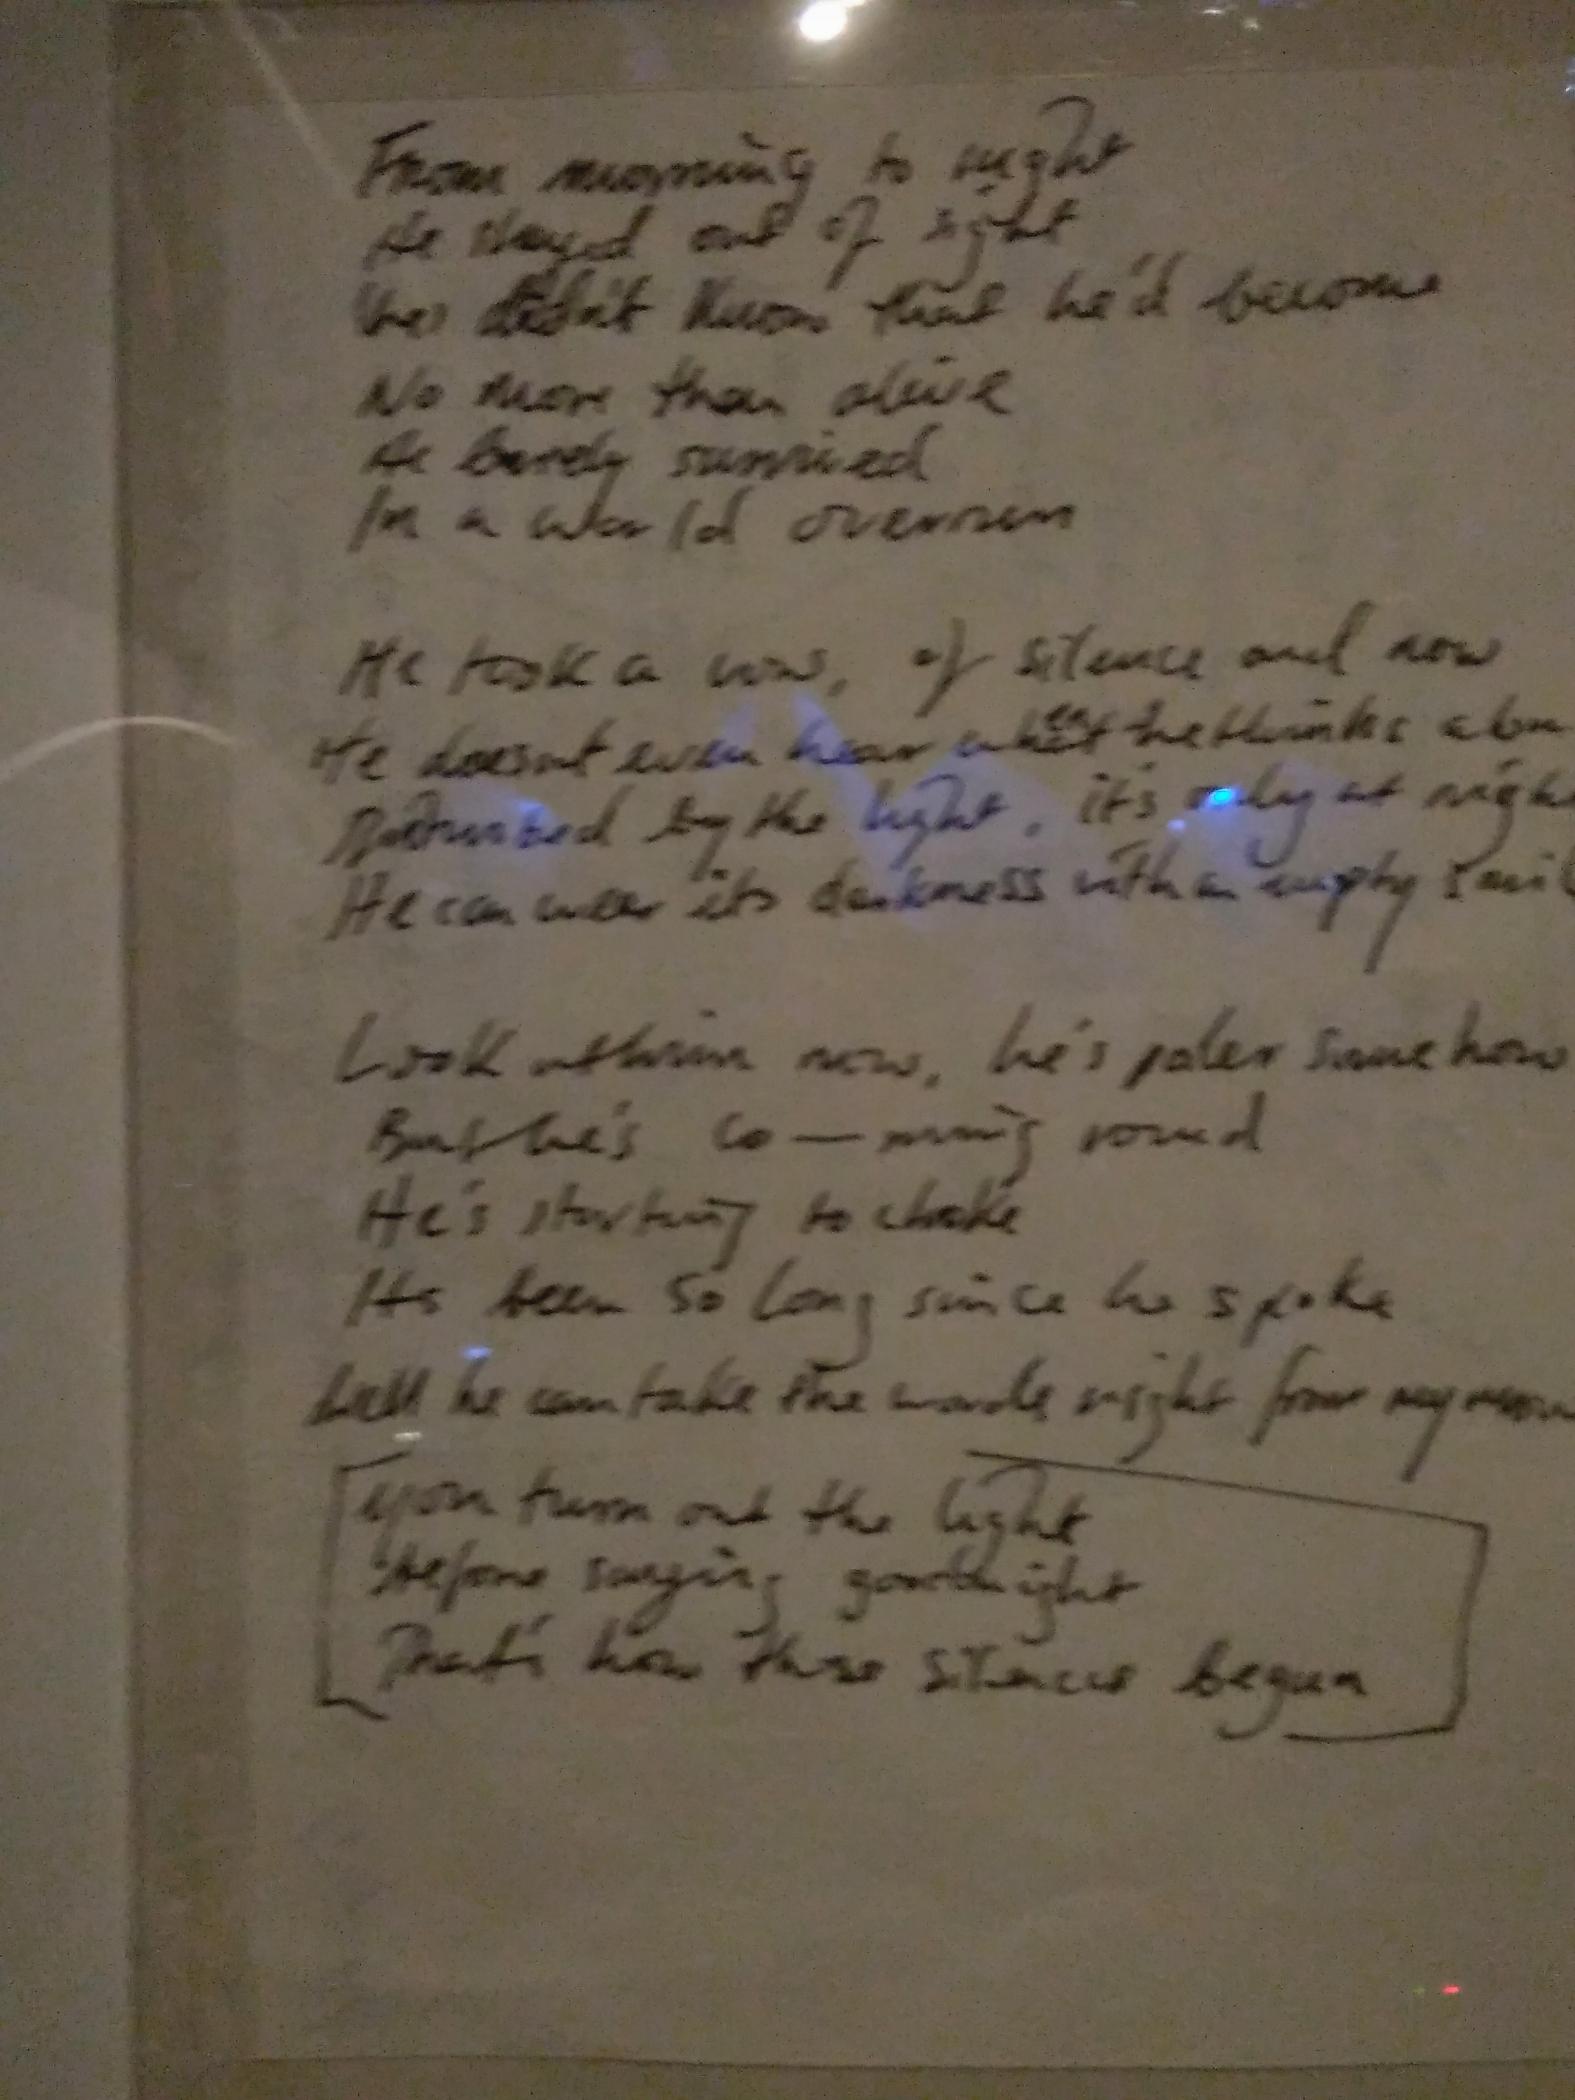 From morning to night
He stayed out of sight
didn't know that he'd become
No more than alive
He barely survived
In a world overrun
He took a vow, of silence and now
He doesnt even hear when he thinks alou
by the light, it's only at nigh
He can wear its darkness with an empty smil
Look at him now, he's paler somehow
But he's co—ming round
He's starting to choke
Its been so long since he spoke
Well he can take the words right from my mou
you turn out the light
before saying goodnight
That's how those silences begun